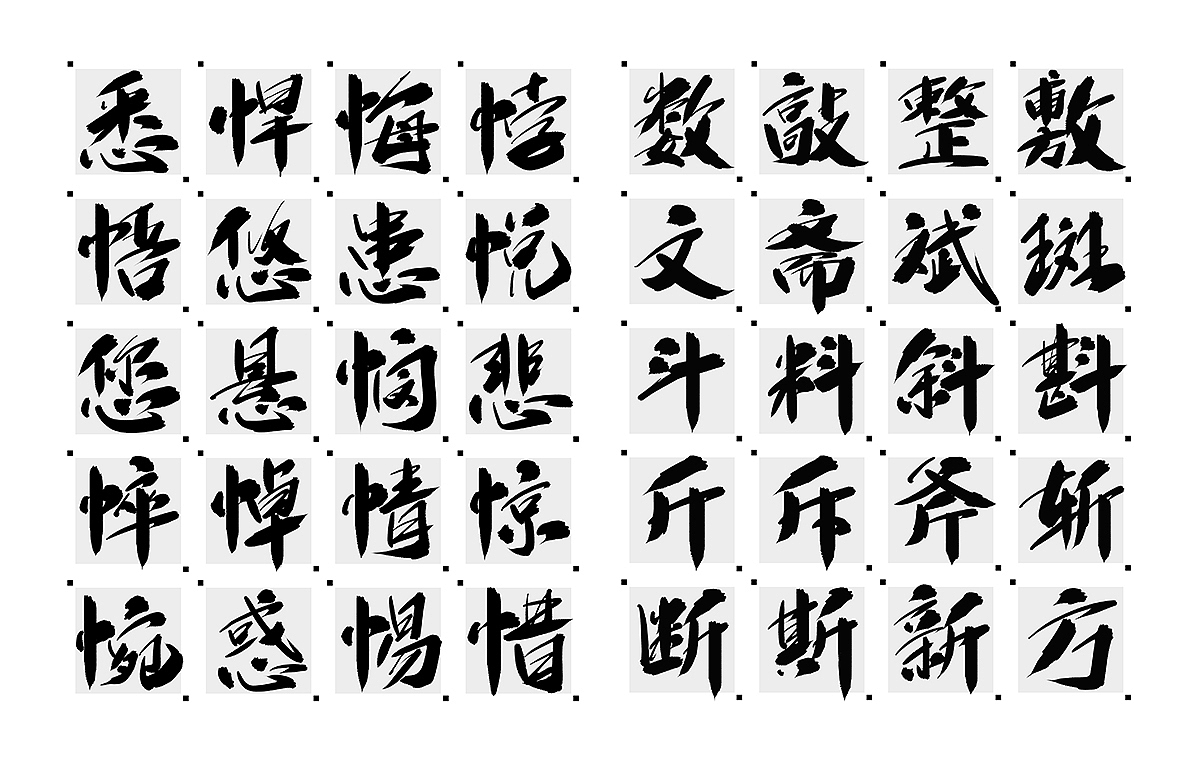 悉悍悔悖
悟悠患悦
您悬悯悲
悴悼情惊
惋惑惕惜
数敲整敷
文斋斌斑
斗料斜斟
斤斥斧斩
断斯新方